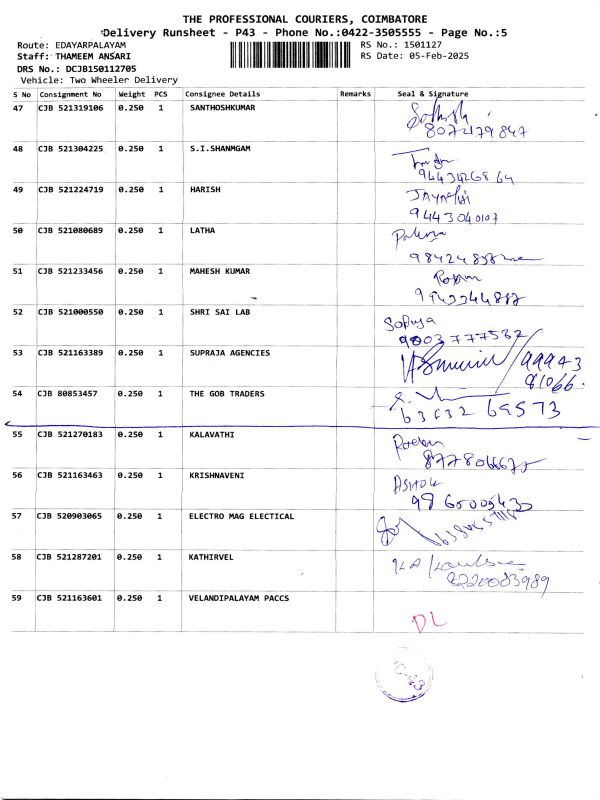 THE PROFESSIONAL COURIERS, COIMBATORE
Delivery Runsheet - P43 - Phone No.:0422-3505555 - Page No.:5
Route: EDAYARPALAYAM RS No.: 1501127
Staff: THAMEEM ANSARI RS Date: 05-Feb-2025
DRS No.: DCJB150112705
Vehicle: Two Wheeler Delivery
S No Consignment No Weight PCS Consignee Details Remarks Seal & Signature
47 CJB 521319106 0.250 1 SANTHOSHKUMAR
48 CJB 521304225 0.250 1 S.I.SHANMGAM
49 CJB 521224719 0.250 1 HARISH
9443040107
50 CJB 521080689 0.250 1 LATHA
51 CJB 521233456 0.250 1 MAHESH KUMAR
52 CJB 521000550 0.250 1 SHRI SAI LAB
53 CJB 521163389 0.250 1 SUPRAJA AGENCIES
99943
81066
54 CJB 80853457 0.250 1 THE GOB TRADERS
63632 69573
55 CJB 521270183 0.250 1 KALAVATHI
56 CJB 521163463 0.250 1 KRISHNAVENI
ASHOK
57 CJB 520903065 0.250 1 ELECTRO MAG ELECTICAL
58 CJB 521287201 0.250 1 KATHIRVEL
59 CJB 521163601 0.250 1 VELANDIPALAYAM PACCS
DL